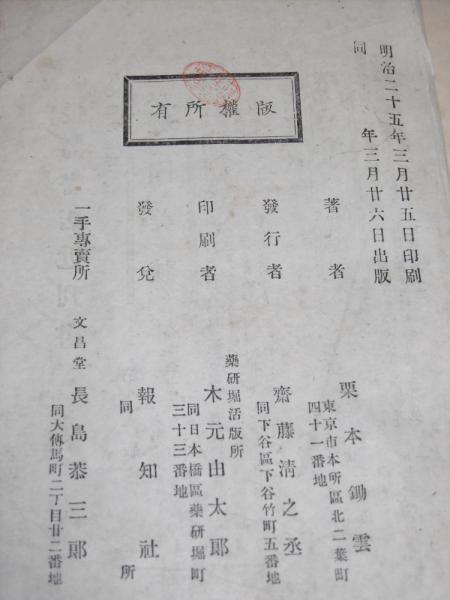 明治二十五年三月廿五日印刷
同年三月廿六日出版
版權所有
著者
栗本鋤雲
東京市本所區北二葉町
四十一番地
發行者
齋藤清之丞
同下谷區下谷竹町五番地
印刷者
藥研堀活版所
木元由太郎
同日本橋區藥研堀町
三十三番地
發兌
報知社
同所
一手專賣所
文昌堂
長島恭三郎
同大傳馬町二丁目廿二番地